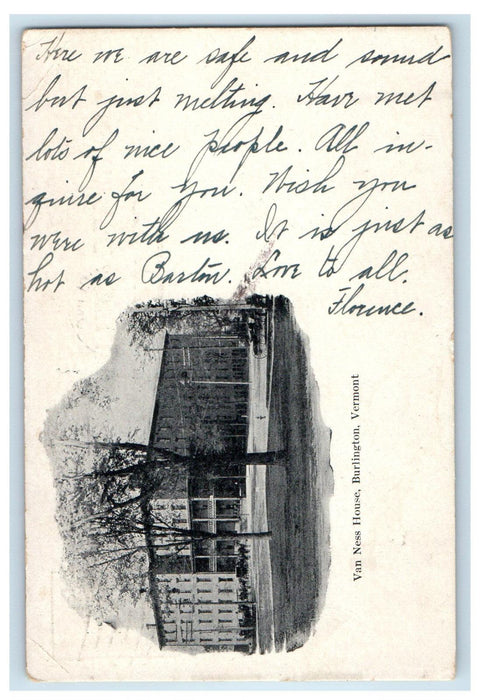 Here we are safe and sound
but just melting. Have met
lots of nice people. All in-
quire for you. Wish you
were with us. It is just as
hot as Barton. Love to all.
Florence.
Van Ness House, Burlington, Vermont